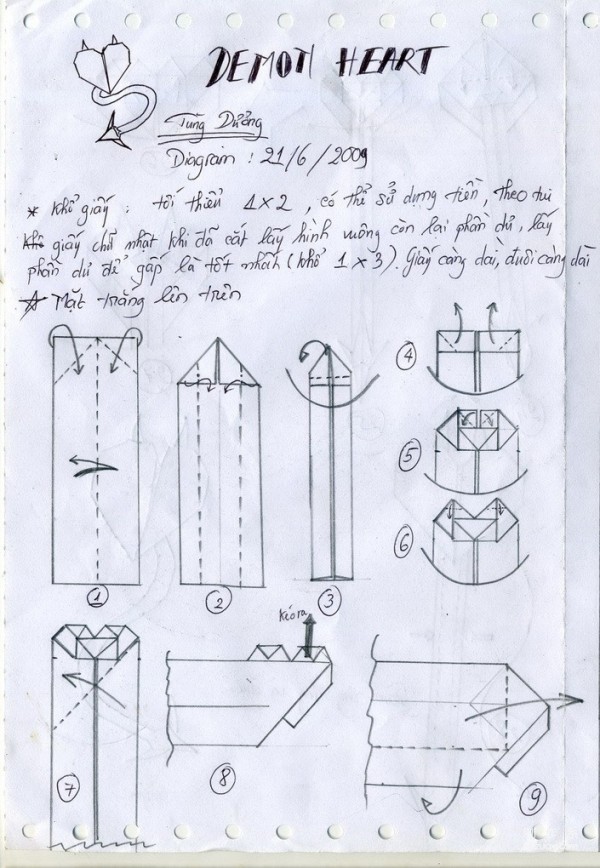 DEMON HEART
Tùng Dưởng
Diagram : 21/6/2009
* Khổ giấy : tối thiểu 1x2 , có thể sử dụng tiền, theo tui
giấy chữ nhật khi đã cắt lấy hình vuông còn lại phần dư, lấy
phần dư để gấp là tốt nhất (khổ 1x3). Giấy càng dài, đuôi càng dài
Mặt trắng lên trên
4
5
6
1
2
3
kéo ra
7
8
9